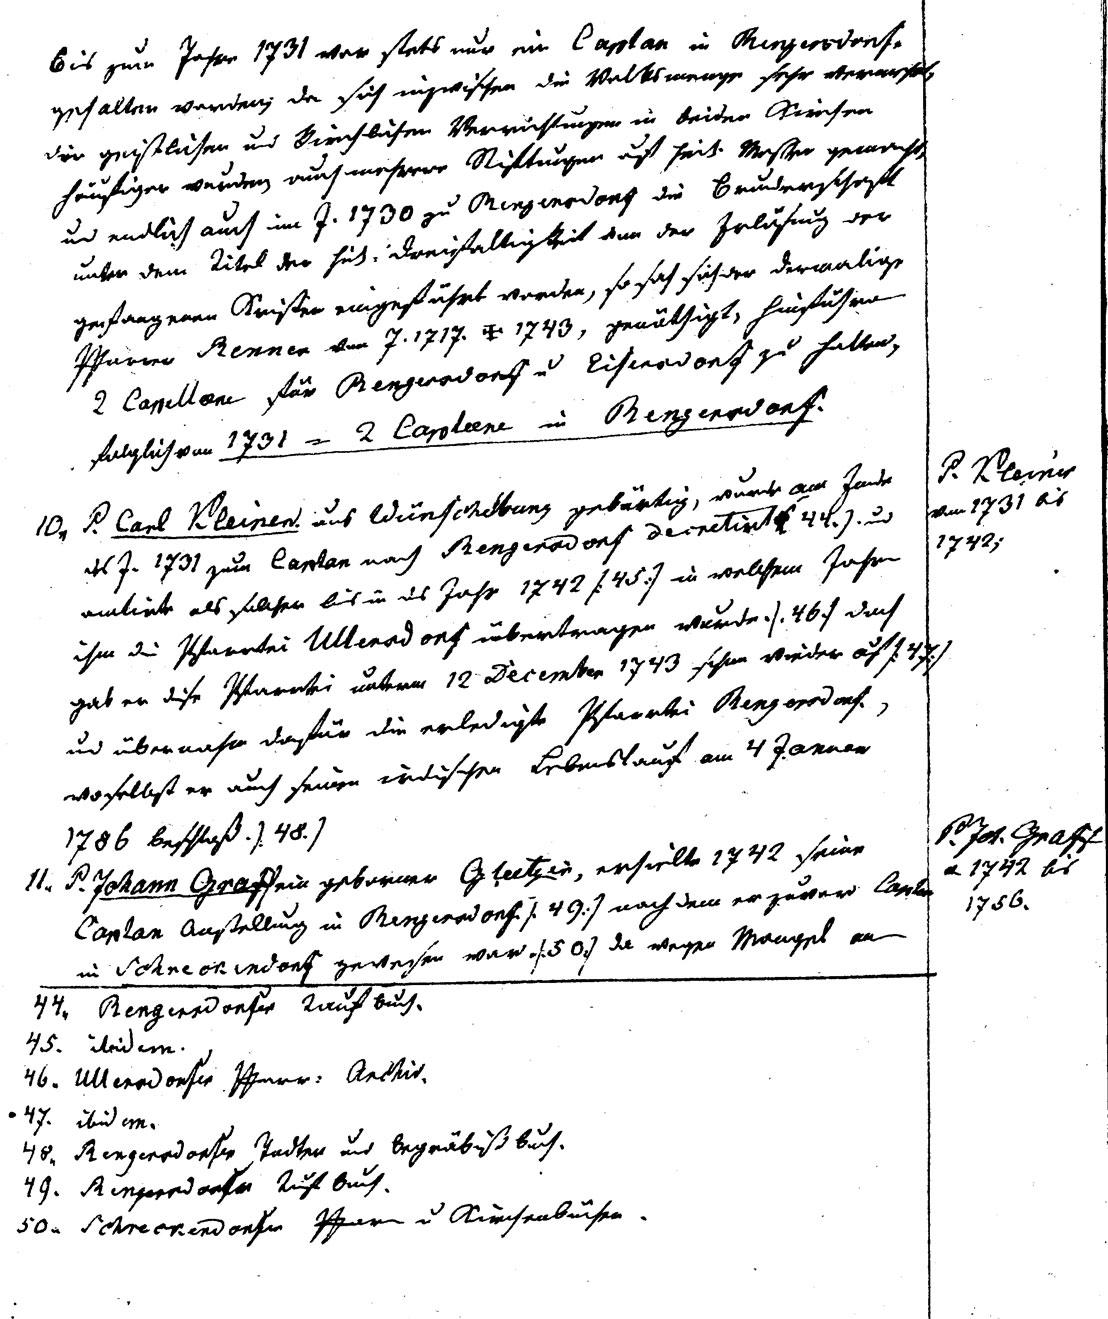 Bis zum Jahre 1731 war stets nur ein Caplan in Rengersdorf
gehalten worden; da sich inzwischen die Volksmenge sehr vermehrt,
die geistlichen und kirchlichen Verrichtungen in beiden Kirchen
häufiger wurden, auch mehrere Stiftungen auf heil. Messen gemacht,
und endlich auch im J. 1730 zu Rengersdorf die Bruderschaft
unter dem Titel der heil. Dreifaltigkeit von der Erlösung der
gefangenen Kristen eingeführt worden, so sah sich der dermalige
Pfarrer Renner von J. 1717. 1743, genöthigt, hinführo
2 Capellane für Rengersdorf u Eisersdorf zu halten,
folglich von 1731 = 2 Caplaene in Rengersdorf.
10. P. Carl Kleiner aus Wünschelburg gebürtig, wurde am Ende
des J. 1731 zum Caplan nach Rengersdorf decretirt (: 44. :) und
amtirte als solcher bis in das Jahr 1742 (: 45 :) in welchem Jahre
ihm die Pfarrtei Ullersdorf übertragen wurde (: 46 :) doch
gab er diese Pfarrtei unterm 12 December 1743 schon wieder auf (: 47 :)
und übernahm dafür die erledigte Pfarrtei Rengersdorf,
woselbst er auch seinen irdischen Lebenslauf am 4 Januar
1786 beschloß. (: 48. :)
P. Kleiner
von 1731 bis
1742;
11. P. Johann Graff ein geborner Glatzer, erhielte 1742 seine
Caplan Anstellung in Rengersdorf (: 49 :) nachdem er zuvor Caplan
in Schreckendorf gewesen war (: 50 :) da wegen Mangel an
P. Joh. Graff
a 1742 bis
1756.
44. Rengersdorfer Taufbuch.
45. ibidem.
46. Ullersdorfer Pfarr: Archiv.
47. ibidem.
48. Rengersdorfer Todten und Begräbniß buch.
49. Rengersdorfer Taufbuch.
50. Schreckendorfer Pfarr u Kirchenbücher.